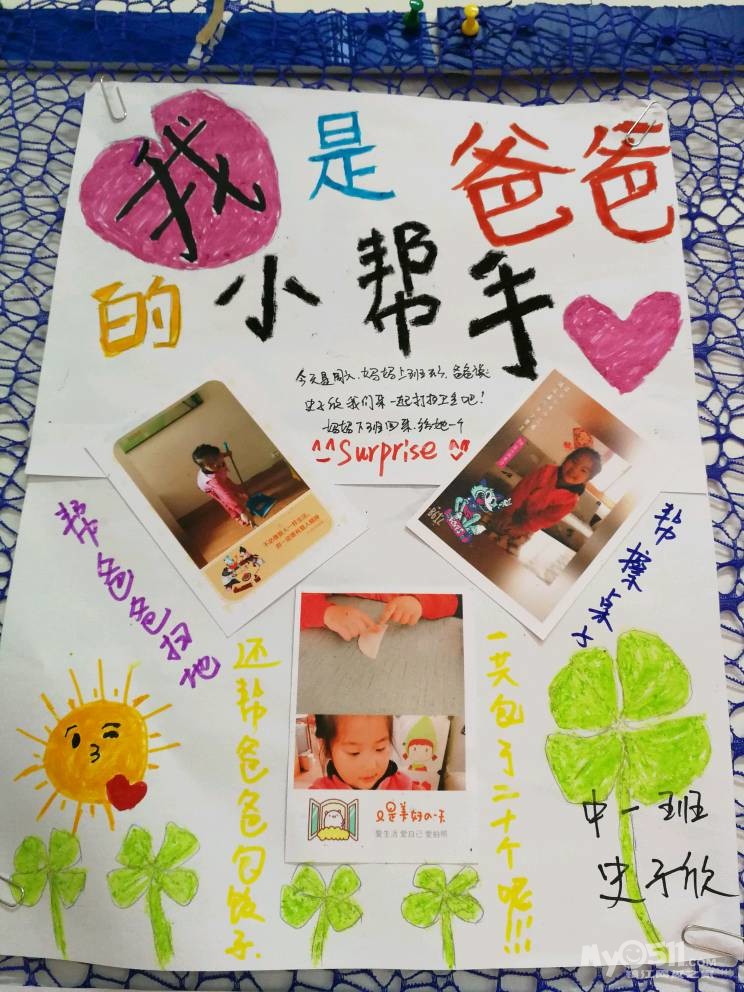 我是爸爸
的小帮手
今天是周六,妈妈上班去了,爸爸说
史子欣我们来一起打扫卫生吧!
妈妈下班回来给她一个
^^Surprise
帮爸爸扫地
帮擦桌子
还帮爸爸包饺子
一共包了二十个呢!!!
又是美好的一天
爱生活 爱自己 爱拍照
中一班
史子欣
My0511.COM